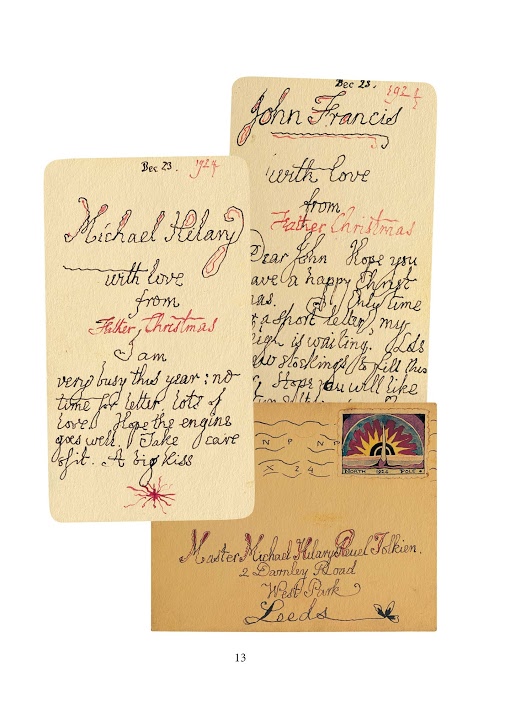 Dec 23. 1924
Michael Hilary
with love
from
Father Christmas
I am
very busy this year: no
time for letter. Lots of
love. Hope the engine
goes well. Take care
of it. A big kiss
Dec 23. 1924
John Francis
with love
from
Father Christmas
Dear John Hope you
ave a happy Christ
mas. Only time
r a short letter, my
eigh is waiting. Lots
ew stockings to fill this
Hope you will like
N P N P
X 24
NORTH 1924 POLE
Master Michael Hilary Reuel Tolkien.
2 Darnley Road
West Park
Leeds
13